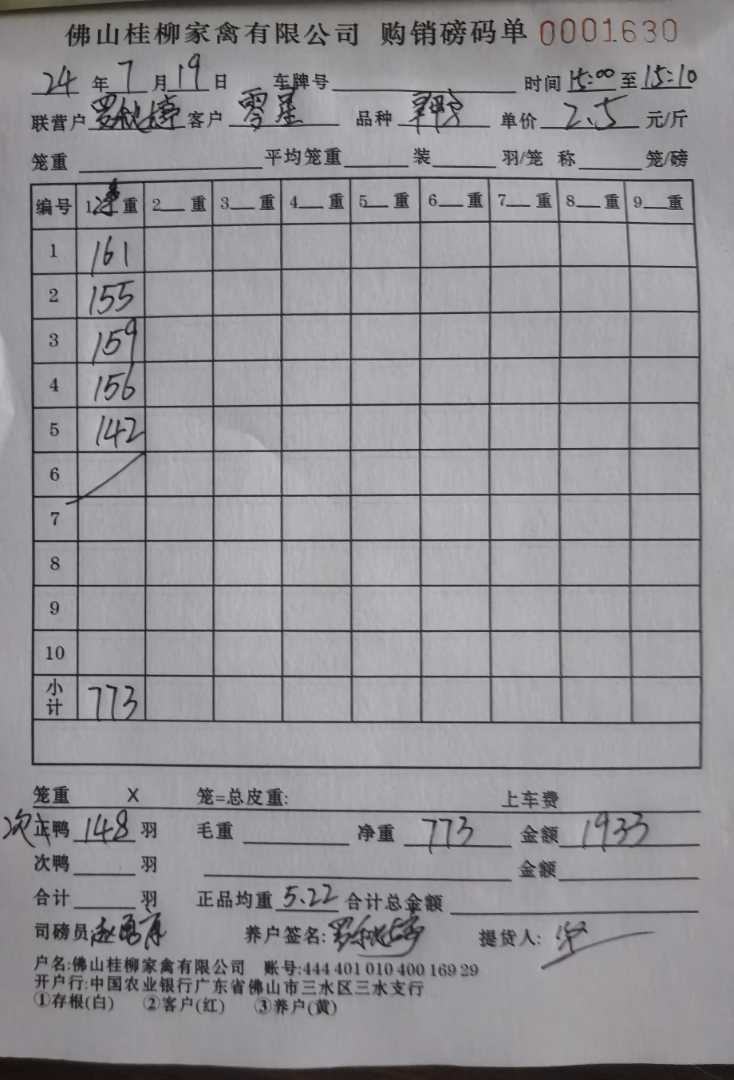 佛山桂柳家禽有限公司 购销磅码单 0001630
24 年 7 月 19 日 车牌号 时间 15:00 至 15:10
联营户 客户 零星 品种 单价 2.5 元/斤
笼重 平均笼重 装 羽/笼 称 笼/磅
编号 1 净 重 2 重 3 重 4 重 5 重 6 重 7 重 8 重 9 重
1 161
2 155
3 159
4 156
5 142
6
7
8
9
10
小计 773
笼重 X 笼=总皮重: 上车费
次 正鸭 148 羽 毛重 净重 773 金额 1933
次鸭 羽 金额
合计 羽 正品均重 5.22 合计总金额
司磅员 养户签名: 提货人:
户名:佛山桂柳家禽有限公司 账号:444 401 010 400 169 29
开户行:中国农业银行广东省佛山市三水区三水支行
①存根(白) ②客户(红) ③养户(黄)